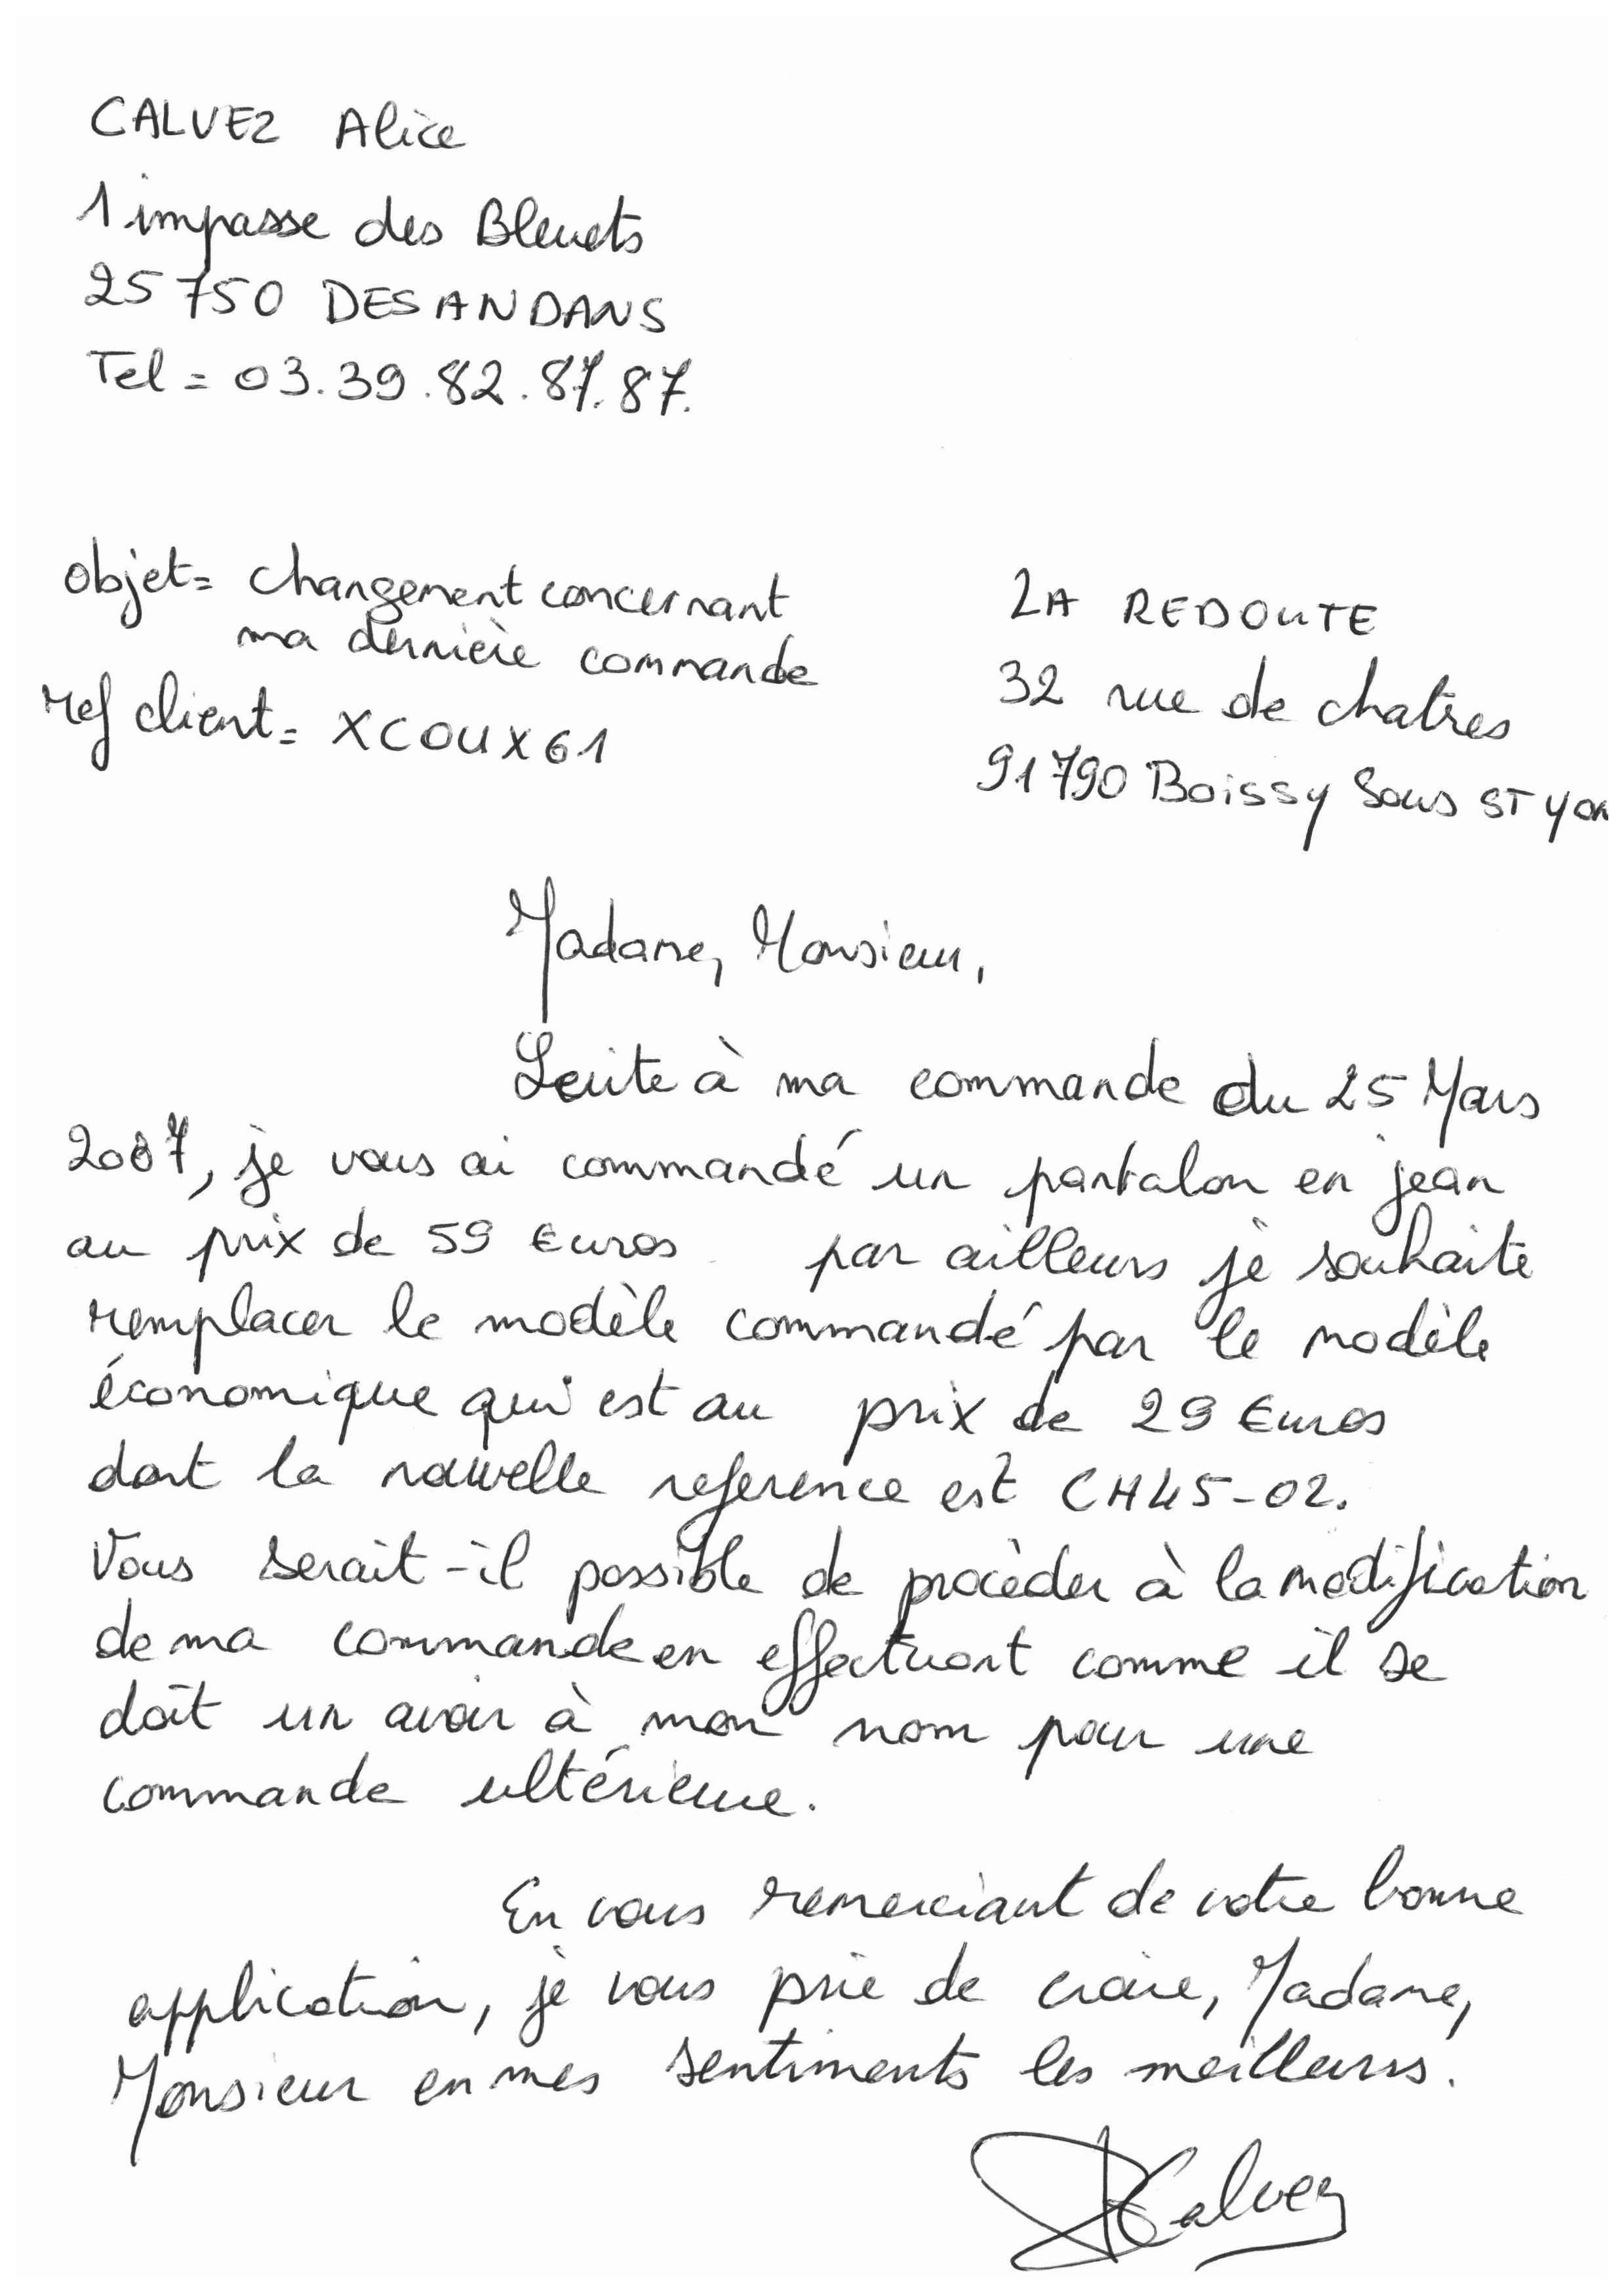 CALVEZ Alice
1 impasse des Bleuets
25750 DESANDANS
Tel = 03.39.82.87.87.
objet = changement concernant
ma dernière commande
ref client = XCOUX61
LA REDOUTE
32 rue de chatres
91790 Boissy Sous ST Yon
Madame, Monsieur,
Suite à ma commande du 25 Mars
2007, je vous ai commandé un pantalon en jean
au prix de 59 Euros par ailleurs je souhaite
remplacer le modèle commandé par le modèle
économique qui est au prix de 29 Euros
dont la nouvelle reference est CH45-02.
Vous serait-il possible de procèder à la modification
de ma commande en effectuant comme il se
doit un avoir à mon nom pour une
commande ultérieure.
En vous remerciant de votre bonne
application, je vous prie de croire, Madame,
Monsieur en mes sentiments les meilleurs.
ACalvez